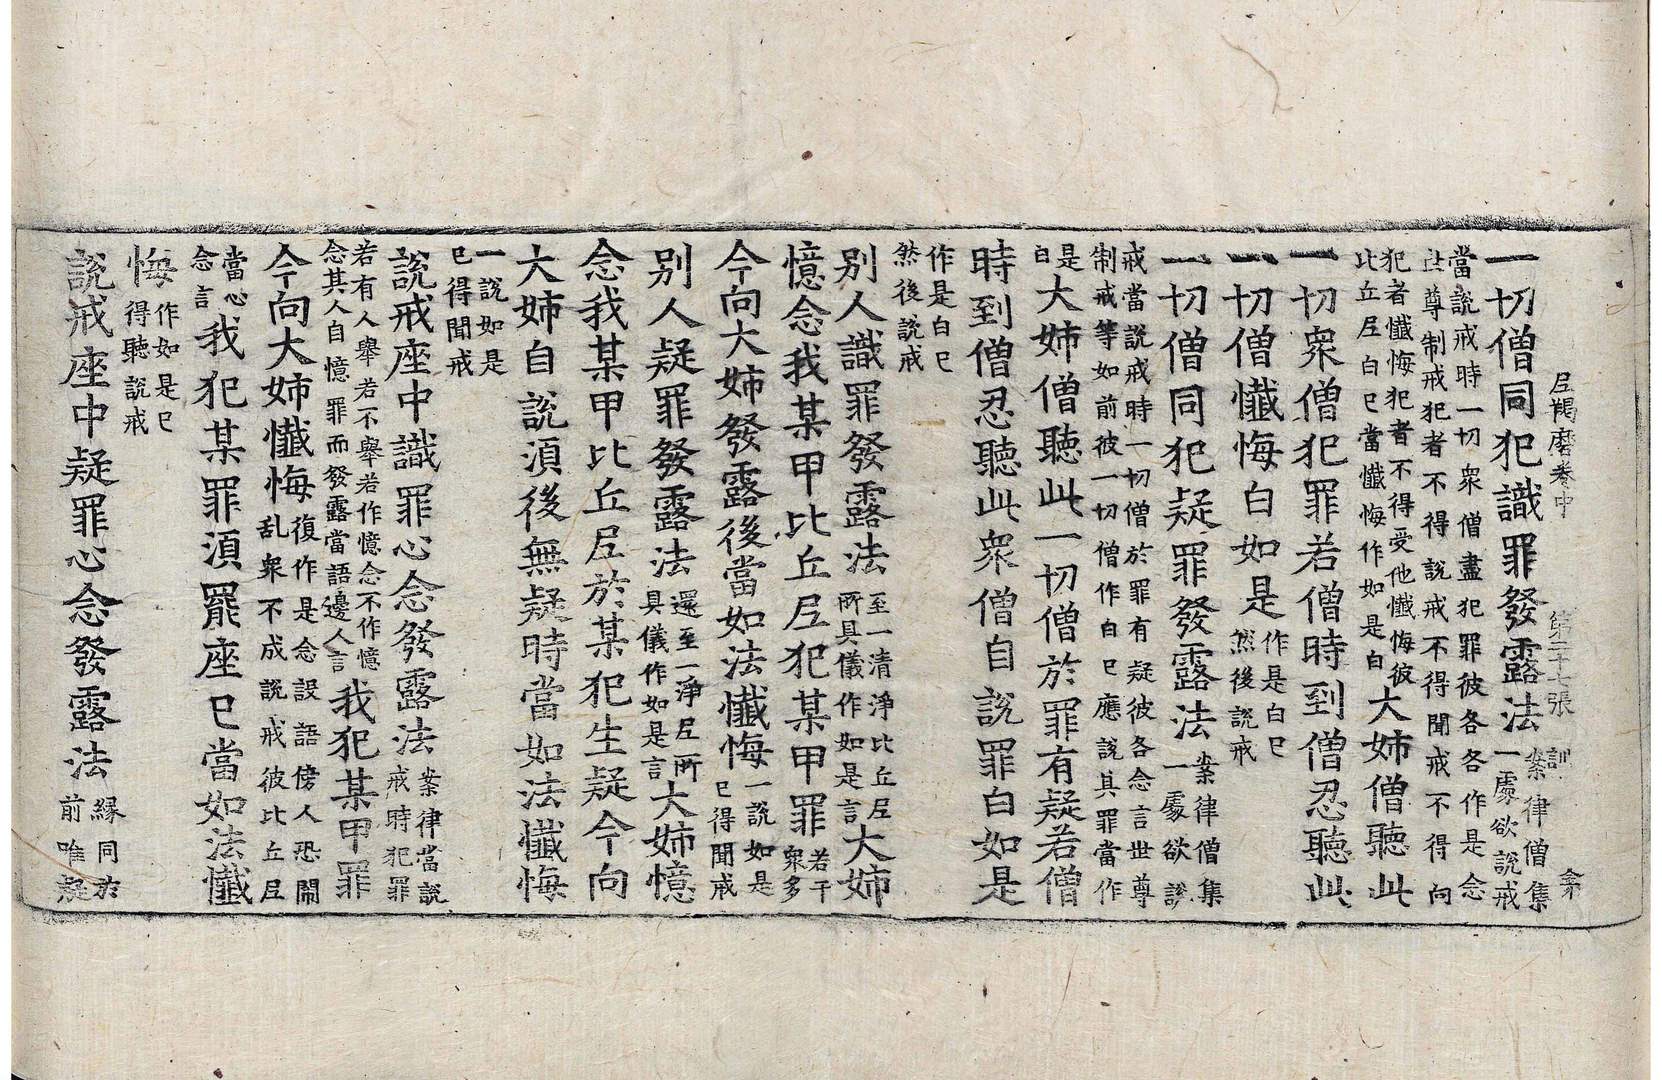 尼羯磨卷中 第二十七張 訓
一切僧同犯識罪發露法案律僧集一處欲說戒
當說戒時一切衆僧盡犯罪彼各各作是念
世尊制戒犯者不得說戒不得聞戒不得向
犯者懺悔犯者不得受他懺悔彼
比丘尼白已當懺悔作如是白大姉僧聽此
一切衆僧犯罪若僧時到僧忍聽此
一切僧懺悔白如是作是白已然後說戒
一切僧同犯疑罪發露法案律僧集一處欲說
戒當說戒時一切僧於罪有疑彼各念言世尊
制戒等如前彼一切僧作白已應說其罪當作
是白大姉僧聽此一切僧於罪有疑若僧
時到僧忍聽此衆僧自說罪白如是
作是白已然後說戒
別人識罪發露法至一清淨比丘尼所具儀作如是言大姉
憶念我某甲比丘尼犯某甲罪若干衆多
今向大姉發露後當如法懺悔一說如是已得聞戒
別人疑罪發露法還至一淨尼所具儀作如是言大姉憶
念我某甲比丘尼於某犯生疑今向
大姉自說須後無疑時當如法懺悔
一說如是已得聞戒
說戒座中識罪心念發露法案律當說戒時犯罪
若有人舉若不舉若作憶念不作憶
念其人自憶罪而發露當語邊人言我犯某甲罪
今向大姉懺悔復作是念設語傍人恐鬧亂衆不成說戒彼比丘尼
當心念言我犯某罪須罷座已當如法懺
悔作如是已得聽說戒
說戒座中疑罪心念發露法緣同於前唯疑